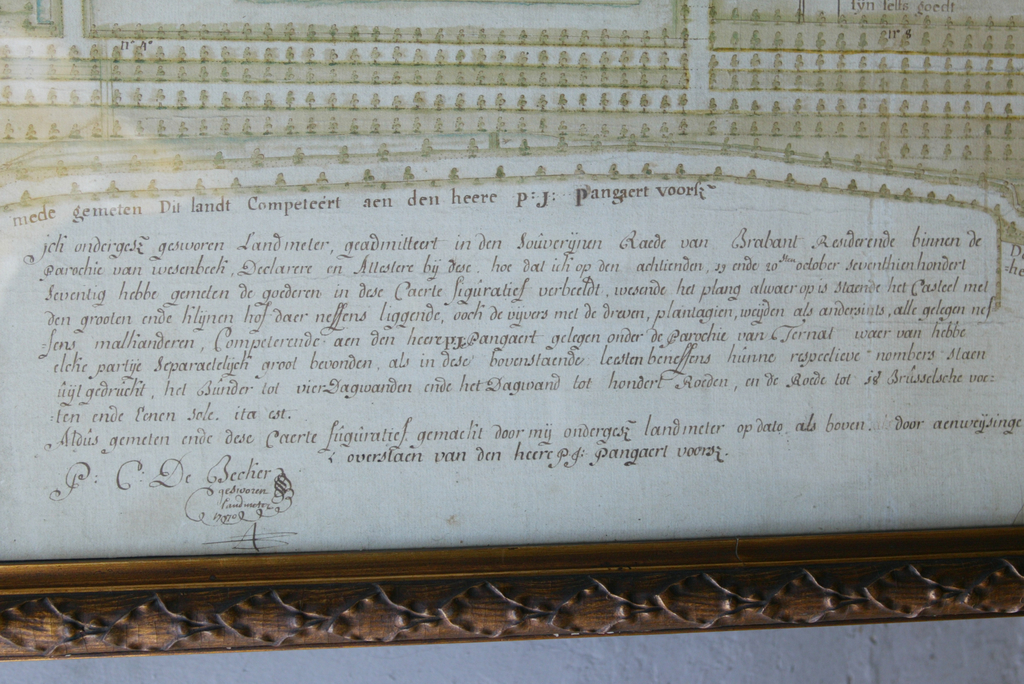 sÿn selfs goedt
nr 4
nr 8
mede gemeten Dit landt Competeért aen den heere P: J: Pangaert voorsz
ick ondergesz gesworen Landmeter, geadmitteert in den Soûverÿnen Raede van Brabant Residerende binnen de
Parochie van wesenbeek, Declarere en Attestere bÿ dese. hoe dat ick op den achtienden, 19 ende 20sten october seventhien hondert
seventig hebbe gemeten de goederen in dese Caerte figûratief verbeeldt, wesende het plang alwaer op is staende het Casteel met
den grooten ende klijnen hof daer neffens liggende, oock de vijvers met de dreven, plantagien, weijden als andersints, alle gelegen nef
=fens malkanderen, Competerende aen den heere P:J: Pangaert gelegen onder de Parochie van Ternat waer van hebbe
elcke partije Separaetelijck groot bevonden, als in dese bovenstaende leesten beneffens hunne respectieve nombers staen
ûijtgedruckt, het Bûnder tot vier Dagwanden ende het Dagwand tot hondert Roeden, en de Roede tot 18½ Brûsselsche voe=
=ten ende Eenen sole. ita est.
Aldûs gemeten ende dese Caerte fûgûratief gemackt door mij ondergesz landmeter op dato als boven door aenweijsinge
overstaen van den heere P:J: Pangaert voorsz.
P: C: De Becker
gesworen
landmeter
1770